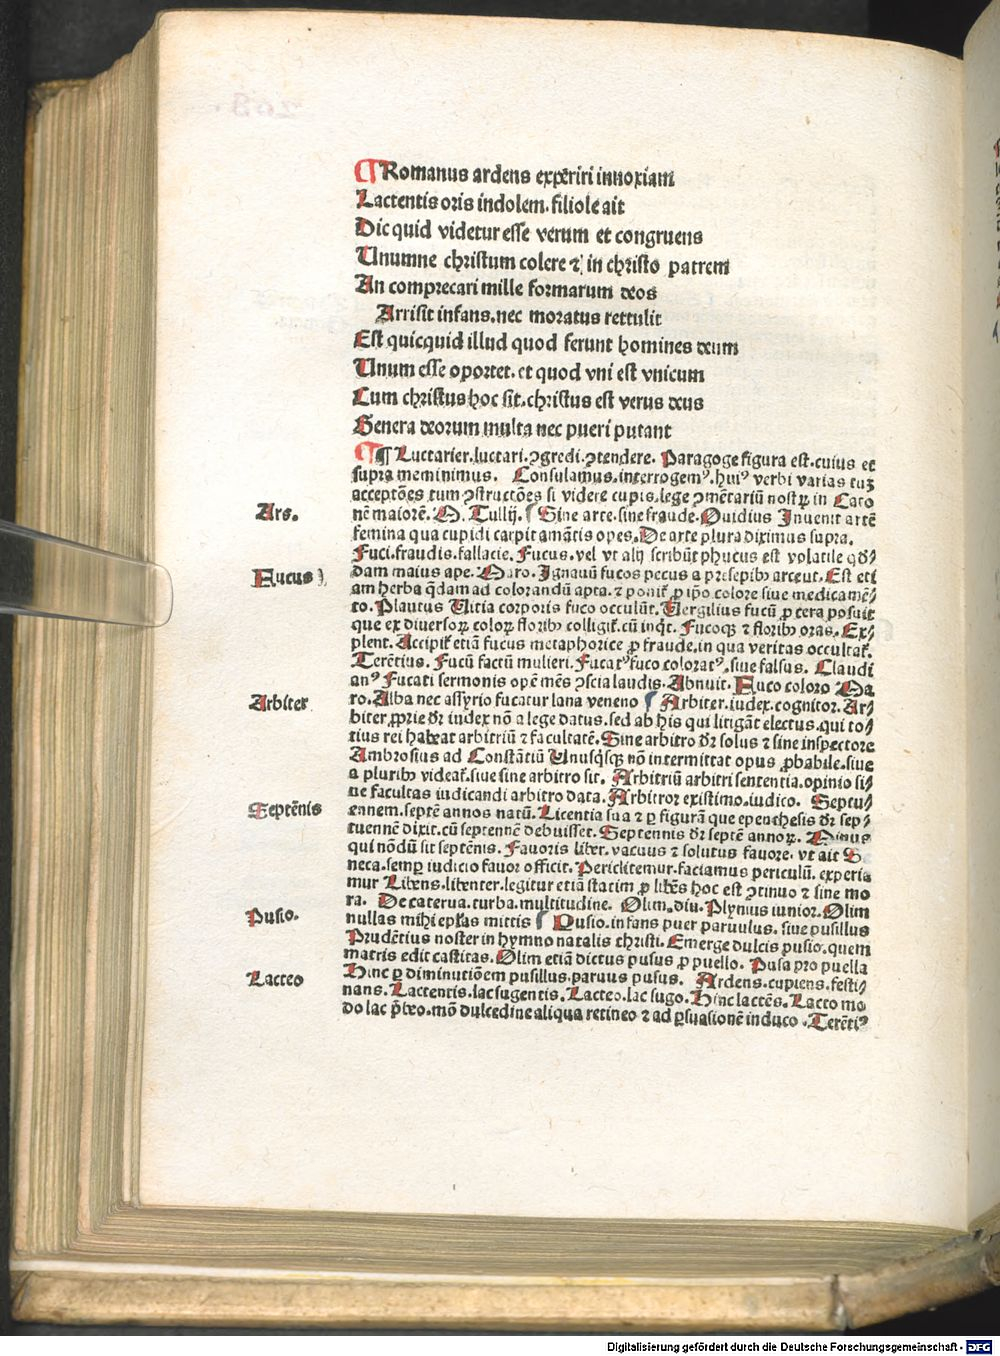 ¶Romanus ardens experiri innoxiam
Lactentis oris indolem. filiole ait
Dic quid videtur esse verum et congruens
Unumne christum colere ⁊ in christo patrem
An comprecari mille formarum deos
Arrisit infans. nec moratus rettulit
Est quicquid illud quod ferunt homines deum
Unum esse oportet. et quod vni est vnicum
Cum christus hoc sit. christus est verus deus
Genera deorum multa nec pueri putant
¶ Luctarier. luctari. ꝯgredi. ꝯtendere. Paragoge figura est. cuius et
supra meminimus. Consulamus. interrogemꝰ. huiꝰ verbi varias tuꝫ
acceptões tum ꝯstructões si videre cupis. lege ꝯmētariū nostꝝ in Cato
Ars.
nē maiorē. M. Tullij. Sine arte. sine fraude. Ouidius Inuenit artē
femina qua cupidi carpit amātis opes. De arte plura diximus supra.
Fuci. fraudis. fallacie. Fucus. vel vt alij scribūt phucus est volatile qđ/
Fucus
dam maius ape. Maro. Ignauū fucos pecus a presepibꝰ arcent. Est eti
am herba q̄dam ad colorandū apta. ⁊ ponit̃ ꝓ ip̄o colore siue medicamē/
to. Plautus Uitia corporis fuco occulūt. Uergilius fucū ꝓ cera posuit
que ex diuersoꝝ coloꝝ floribꝰ colligit̃. cū inq̄t. Fucoqꝫ ⁊ floribꝰ oras. Ex/
plent. Accipit̃ etiā fucus metaphorice ꝓ fraude. in qua veritas occultat̃.
Terētius. Fucū factū mulieri. Fucatꝰ fuco coloratꝰ. siue falsus. Claudi
anꝰ Fucati sermonis opē mēs ꝯscia laudis. Abnuit. Fuco coloro Ma
Arbiter
ro. Alba nec assyrio fucatur lana veneno Arbiter. iudex. cognitor. Ar/
biter ꝓprie dr̄ iudex nō a lege datus. sed ab his qui litigāt electus. qui to/
tius rei habeat arbitriū ⁊ facultatē. Sine arbitro dr̄ solus ⁊ sine inspectore
Ambrosius ad Constātiū Unusq̄sqꝫ nō intermittat opus ꝓbabile. siue
a pluribꝰ videat̃. siue sine arbitro sit. Arbitriū arbitri sententia. opinio si/
ue facultas iudicandi arbitro data. Arbitror existimo. iudico. Septu/
Septēnis
ennem. septē annos natū. Licentia sua ⁊ ꝑ figurā que epenthesis dr̄ sep/
tuennē dixit. cū septennē debuisset. Septennis dr̄ septē annoꝝ. Minus
qui nōdū sit septēnis. Fauoris liber. vacuus ⁊ solutus fauore. vt ait Se
neca. semꝑ iudicio fauor officit. Periclitemur. faciamus periculū. experia
mur Libens. libenter. legitur etiā statim ꝓ libēs hoc est ꝯtinuo ⁊ sine mo
ra. De caterua. turba. multitudine. Olim. diu. Plynius iunior. Olim
Pusio.
nullas mihi ep̄las mittis Pusio. infans puer paruulus. siue pusillus
Prudētius noster in hymno natalis christi. Emerge dulcis pusio. quem
matris edit castitas. Olim etiā dictus pusus ꝓ puello. Pusa pro puella
Hinc ꝑ diminutiōem pusillus. paruus pusus. Ardens. cupiens. festi/
Lacteo
nans. Lactentis. lac sugentis. Lacteo. lac sugo. Hinc lactēs. Lacto mo
do lac p̄beo. mō dulcedine aliqua retineo ⁊ ad ꝑsuasionē induco. Terētiꝰ
Digitalisierung gefördert durch die Deutsche Forschungsgemeinschaft - DFG